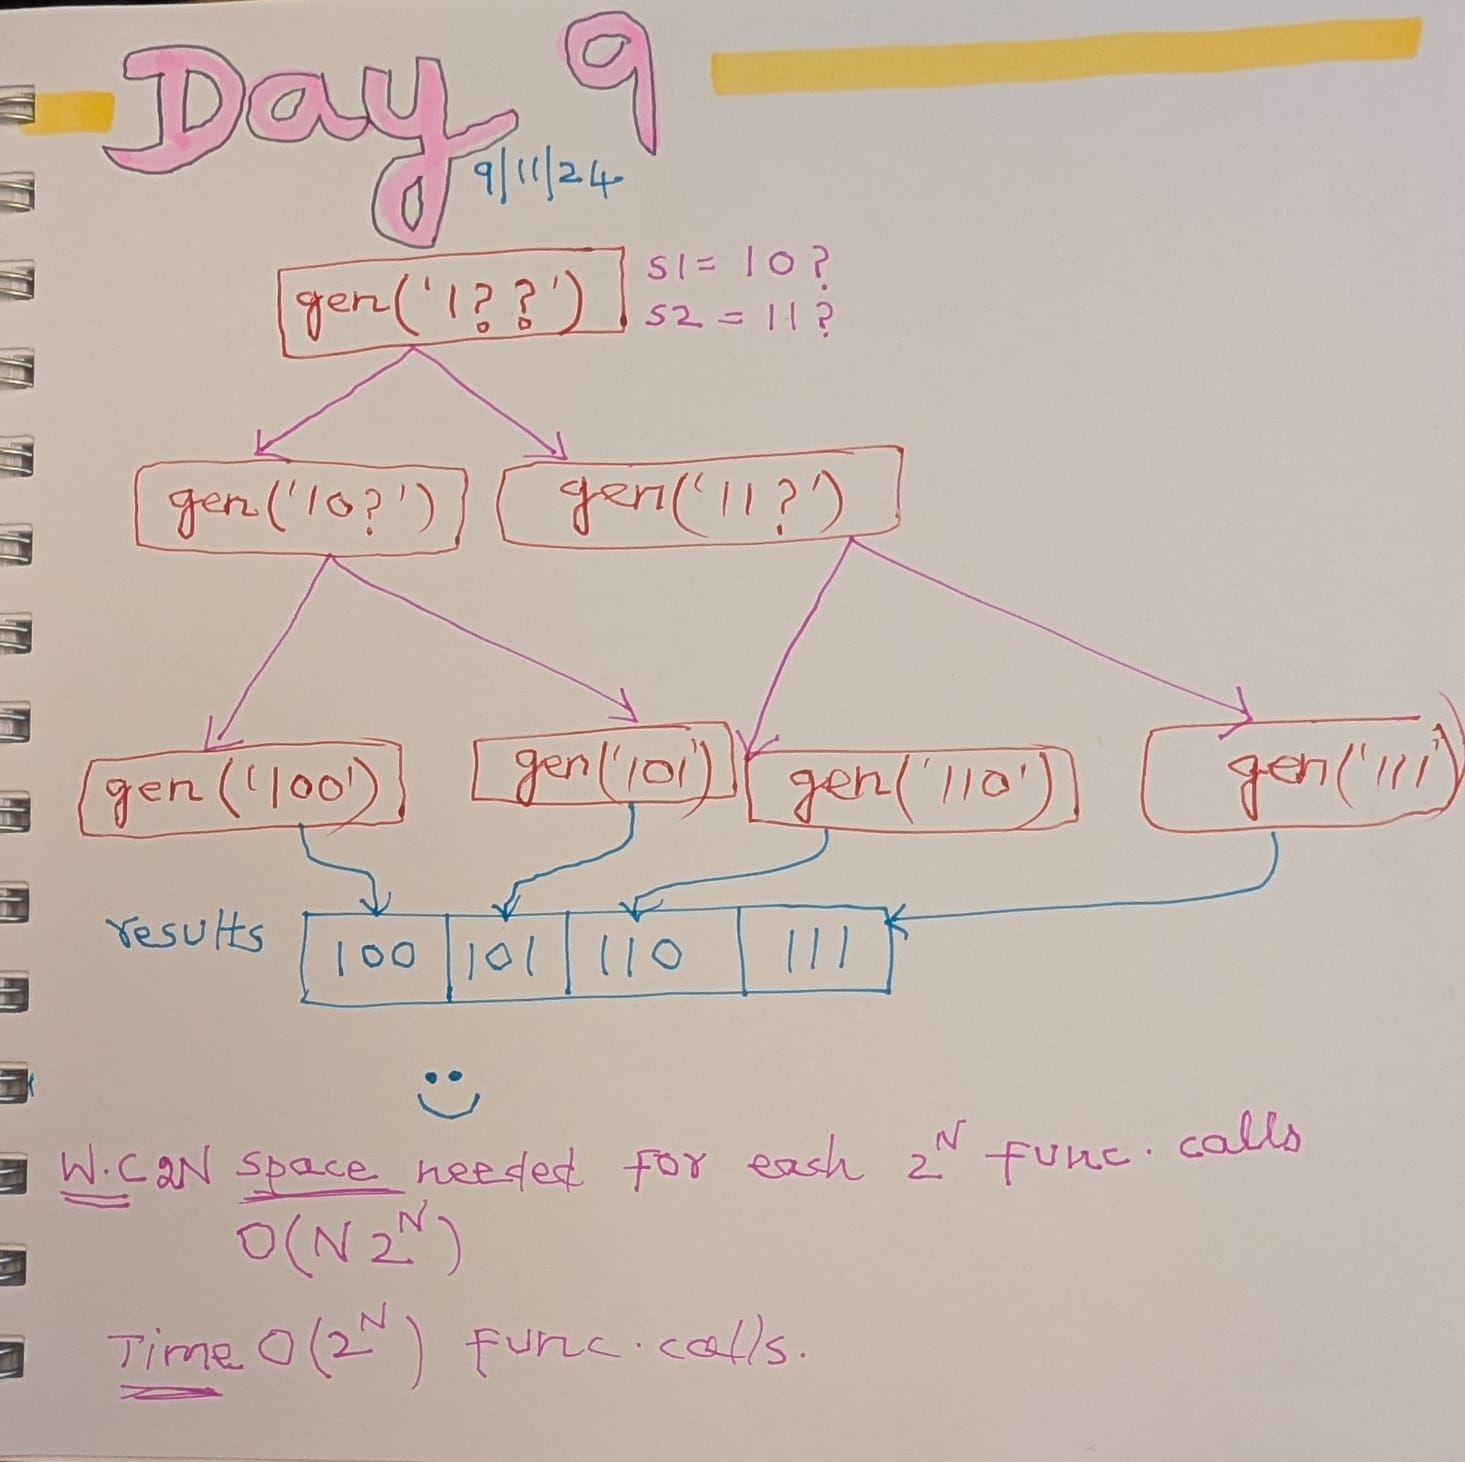 Day 9
9/11/24
gen('1??')
S1 = 10?
S2 = 11?
gen('10?') gen('11?')
gen('100') gen('101') gen('110') gen('111')
results 100 101 110 111
W.C 2N space needed for each 2^N func. calls
O(N 2^N)
Time O(2^N) func. calls.